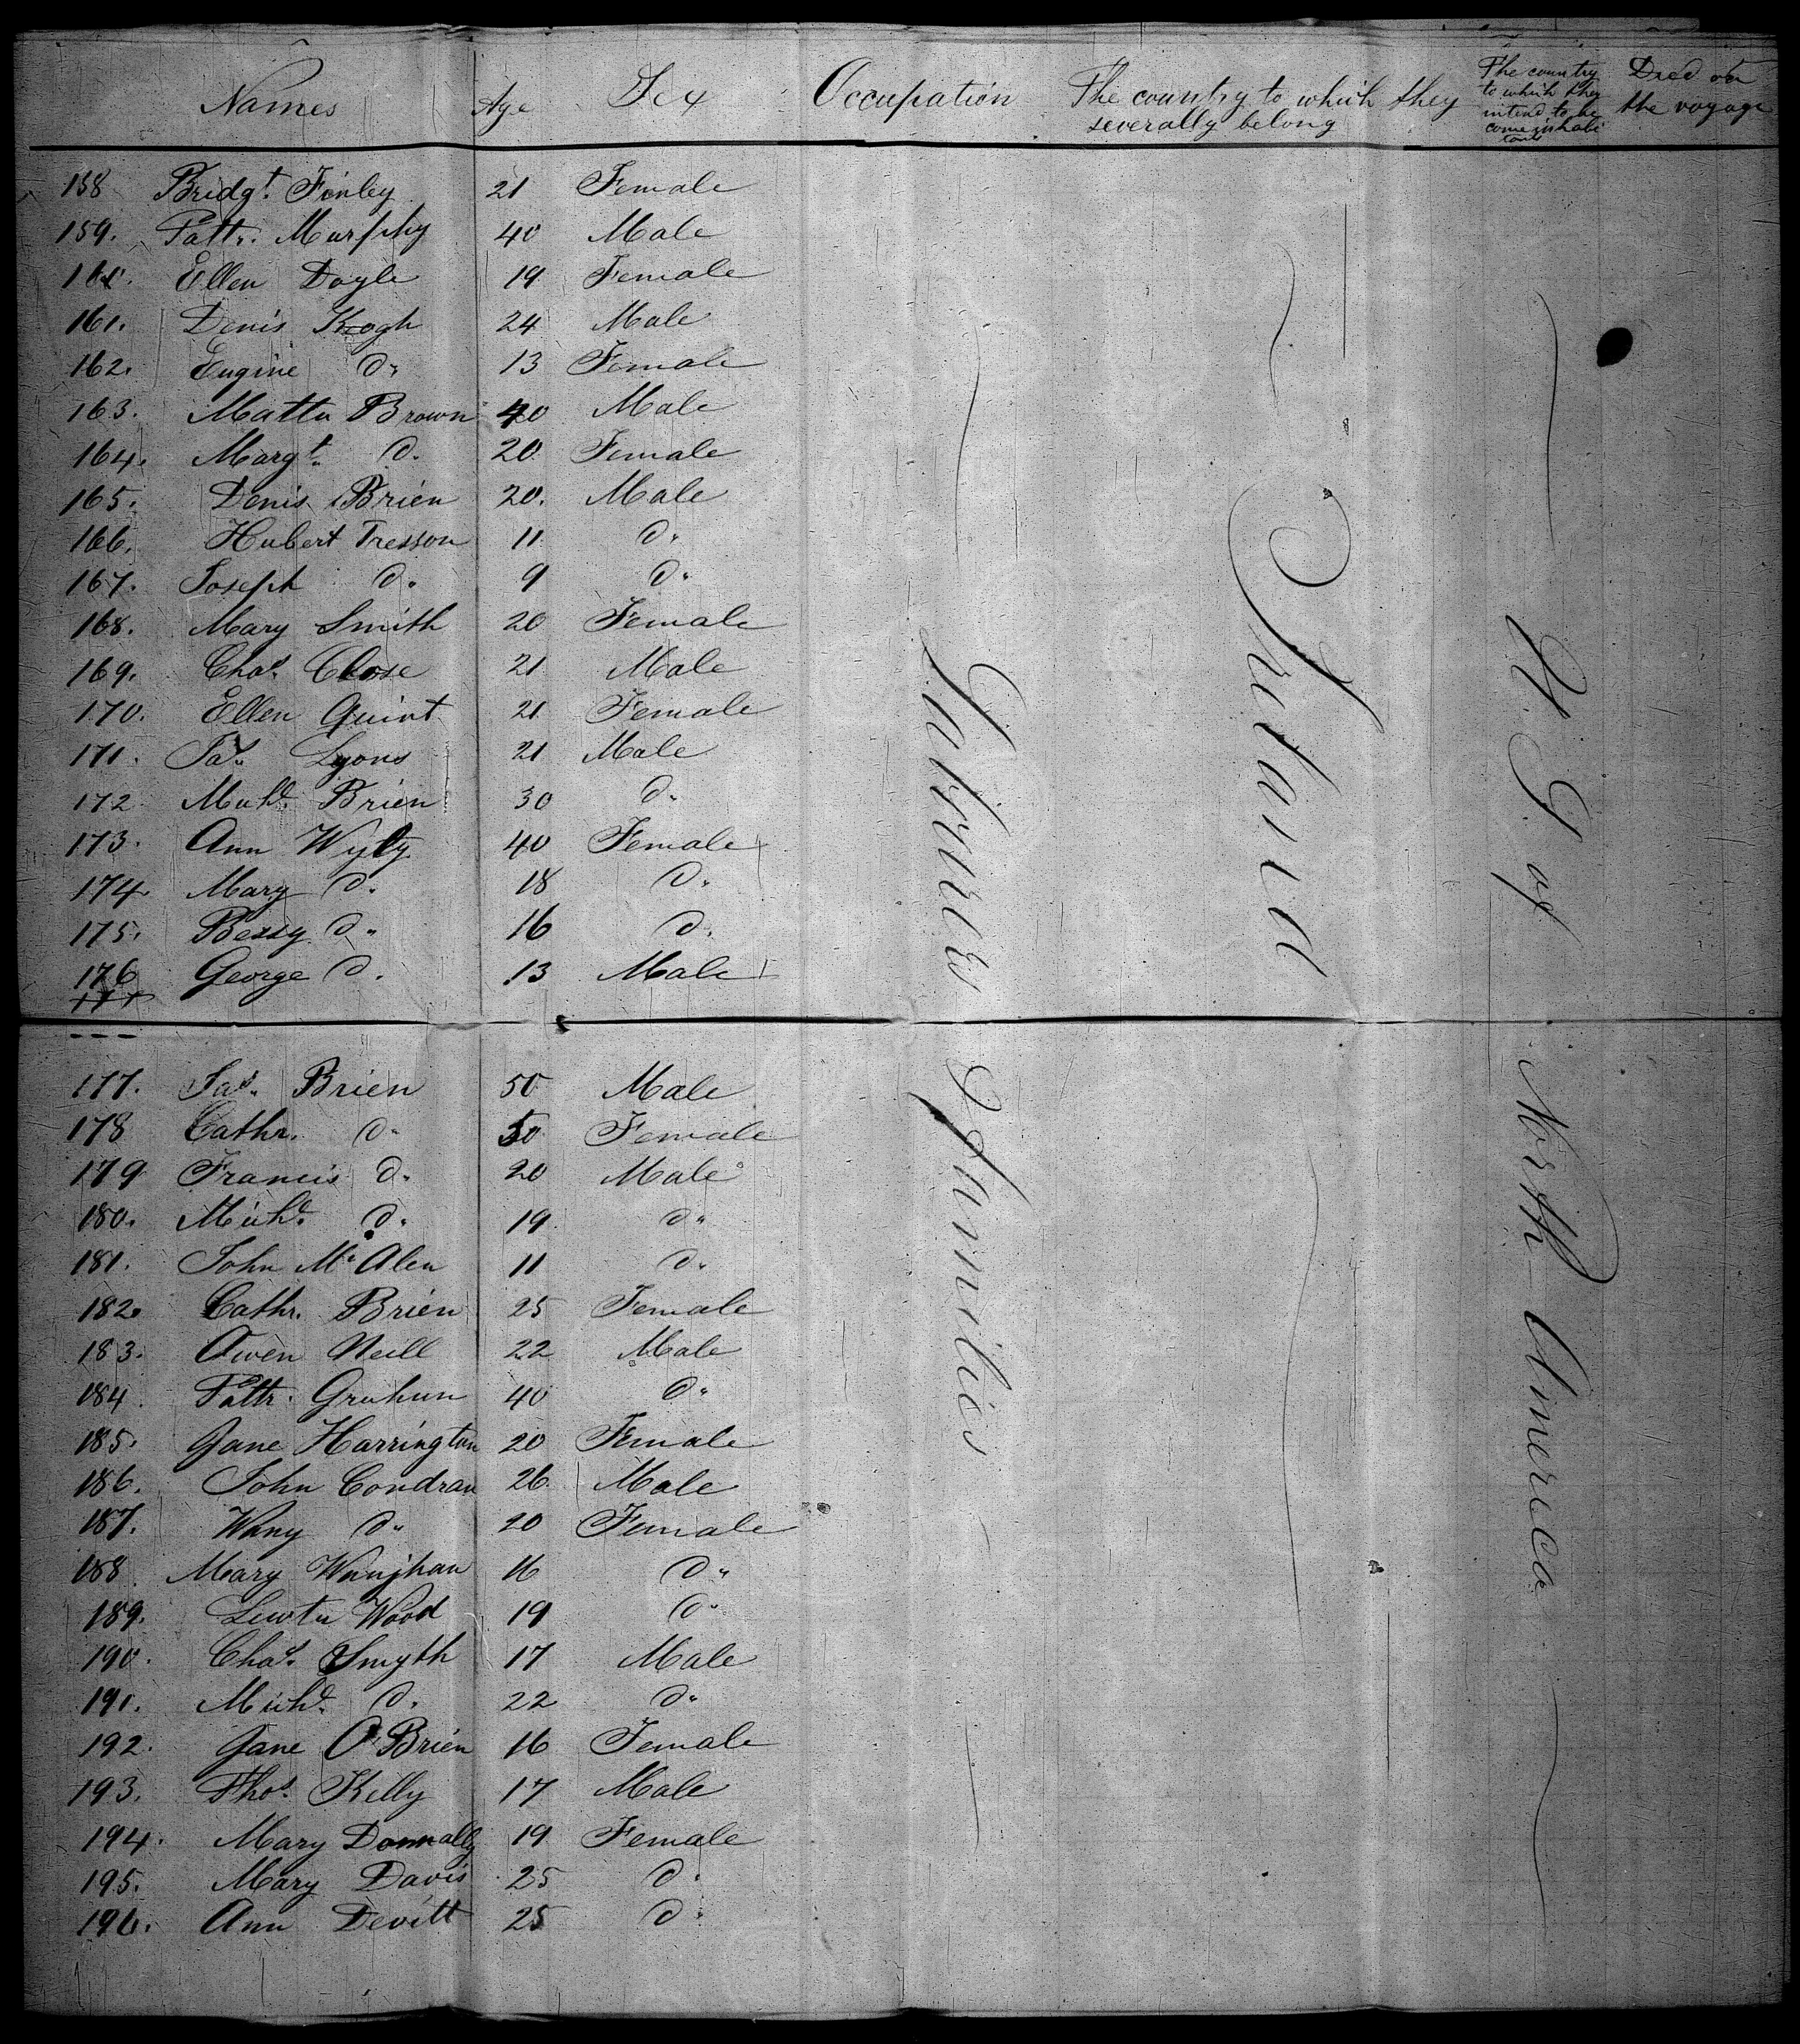 Names Age Sex Occupation The country to which they severally belong The country to which they intend to become inhabitants Died on the voyage
158 Bridgt. Finley 21 Female
159. Patt. Murphy 40 Male
160. Ellen Doyle 19 Female
161. Denis Keogh 24 Male
162. Eugine Do 13 Female
163. Mattw Brown 40 Male
164. Margt. Do. 20 Female
165. Denis Brien 20. Male
166. Hubert Tresson 11 Do.
167. Joseph Do. 9 Do.
168. Mary Smith 20 Female
169. Chas. Close 21 Male
170. Ellen Quint 21 Female
171. Jas. Lyons 21 Male
172 Michl. Brien 30 Do.
173. Ann Wyly 40 Female
174. Mary Do. 18 Do.
175. Bessy Do. 16 Do.
176 George Do. 13 Male
177
177. Jas. Brien 50 Male
178 Cathr. Do. 50 Female
179 Francis Do. 20 Male
180. Michl. Do. 19 Do.
181. John Mc Alen 11 Do.
182. Cathr. Brien 25 Female
183. Owen Neill 22 Male
184. Pattr. Grahun 40 Do.
185. Jane Harrington 20 Female
186. John Condran 26 Male
187. Do. 20 Female
188. Mary 16 Do.
189. Wood 19 Do.
190. Chas. Smyth 17 Male
191. Michl. Do. 22 Do.
192. Jane O'Brien 16 Female
193. Thos. Kelly 17 Male
194. Mary Donnally 19 Female
195. Mary Davis 25 Do.
196. Ann Devitt 25 Do.
Labourers & Families
Ireland
U. S. of North America